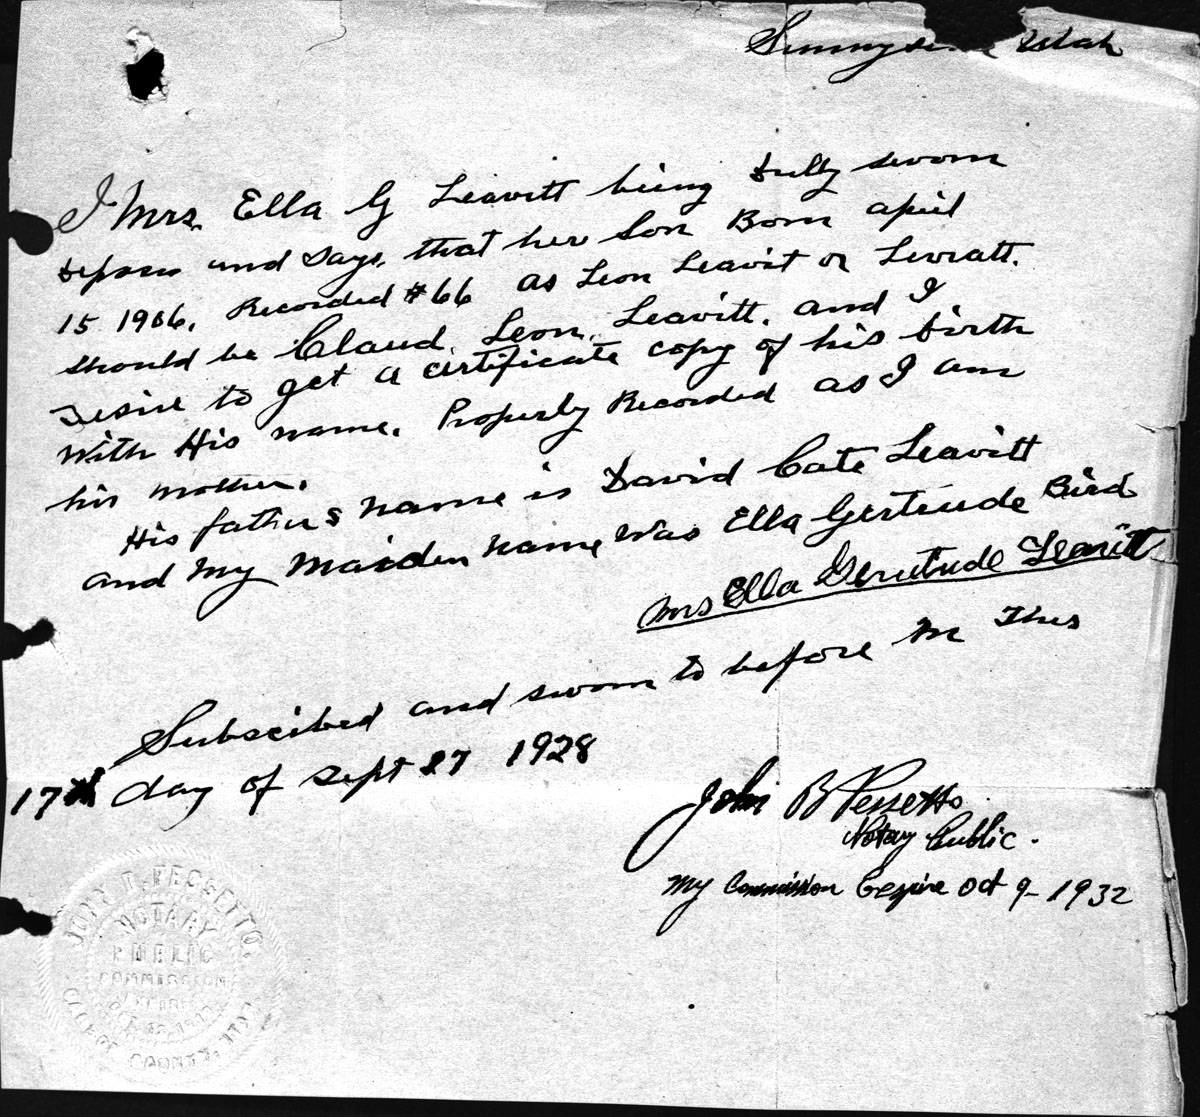 Sunnyside Utah
I Mrs. Ella G Leavitt being dully sworn
deposes and says, that her Son Born april
15 1906. Recorded #66 as Leon Leavit or Levratt.
should be Claud. Leon. Leavitt. and I
desire to get a certificate copy of his birth
With His name. Properly Recorded as I am
his mother.
His father's name is David Cate Leavitt
and my maiden name was Ella Gertrude Bird
Mrs Ella Gerutude Leavitt
Subscibed and sworn to before m This
17th day of Sept 27 1928
John B Pessetto
Notay Public.
My Commission Expire Oct 9- 1932
NOTARY
PUBLIC
COMMISSION
COUNTY, UTAH